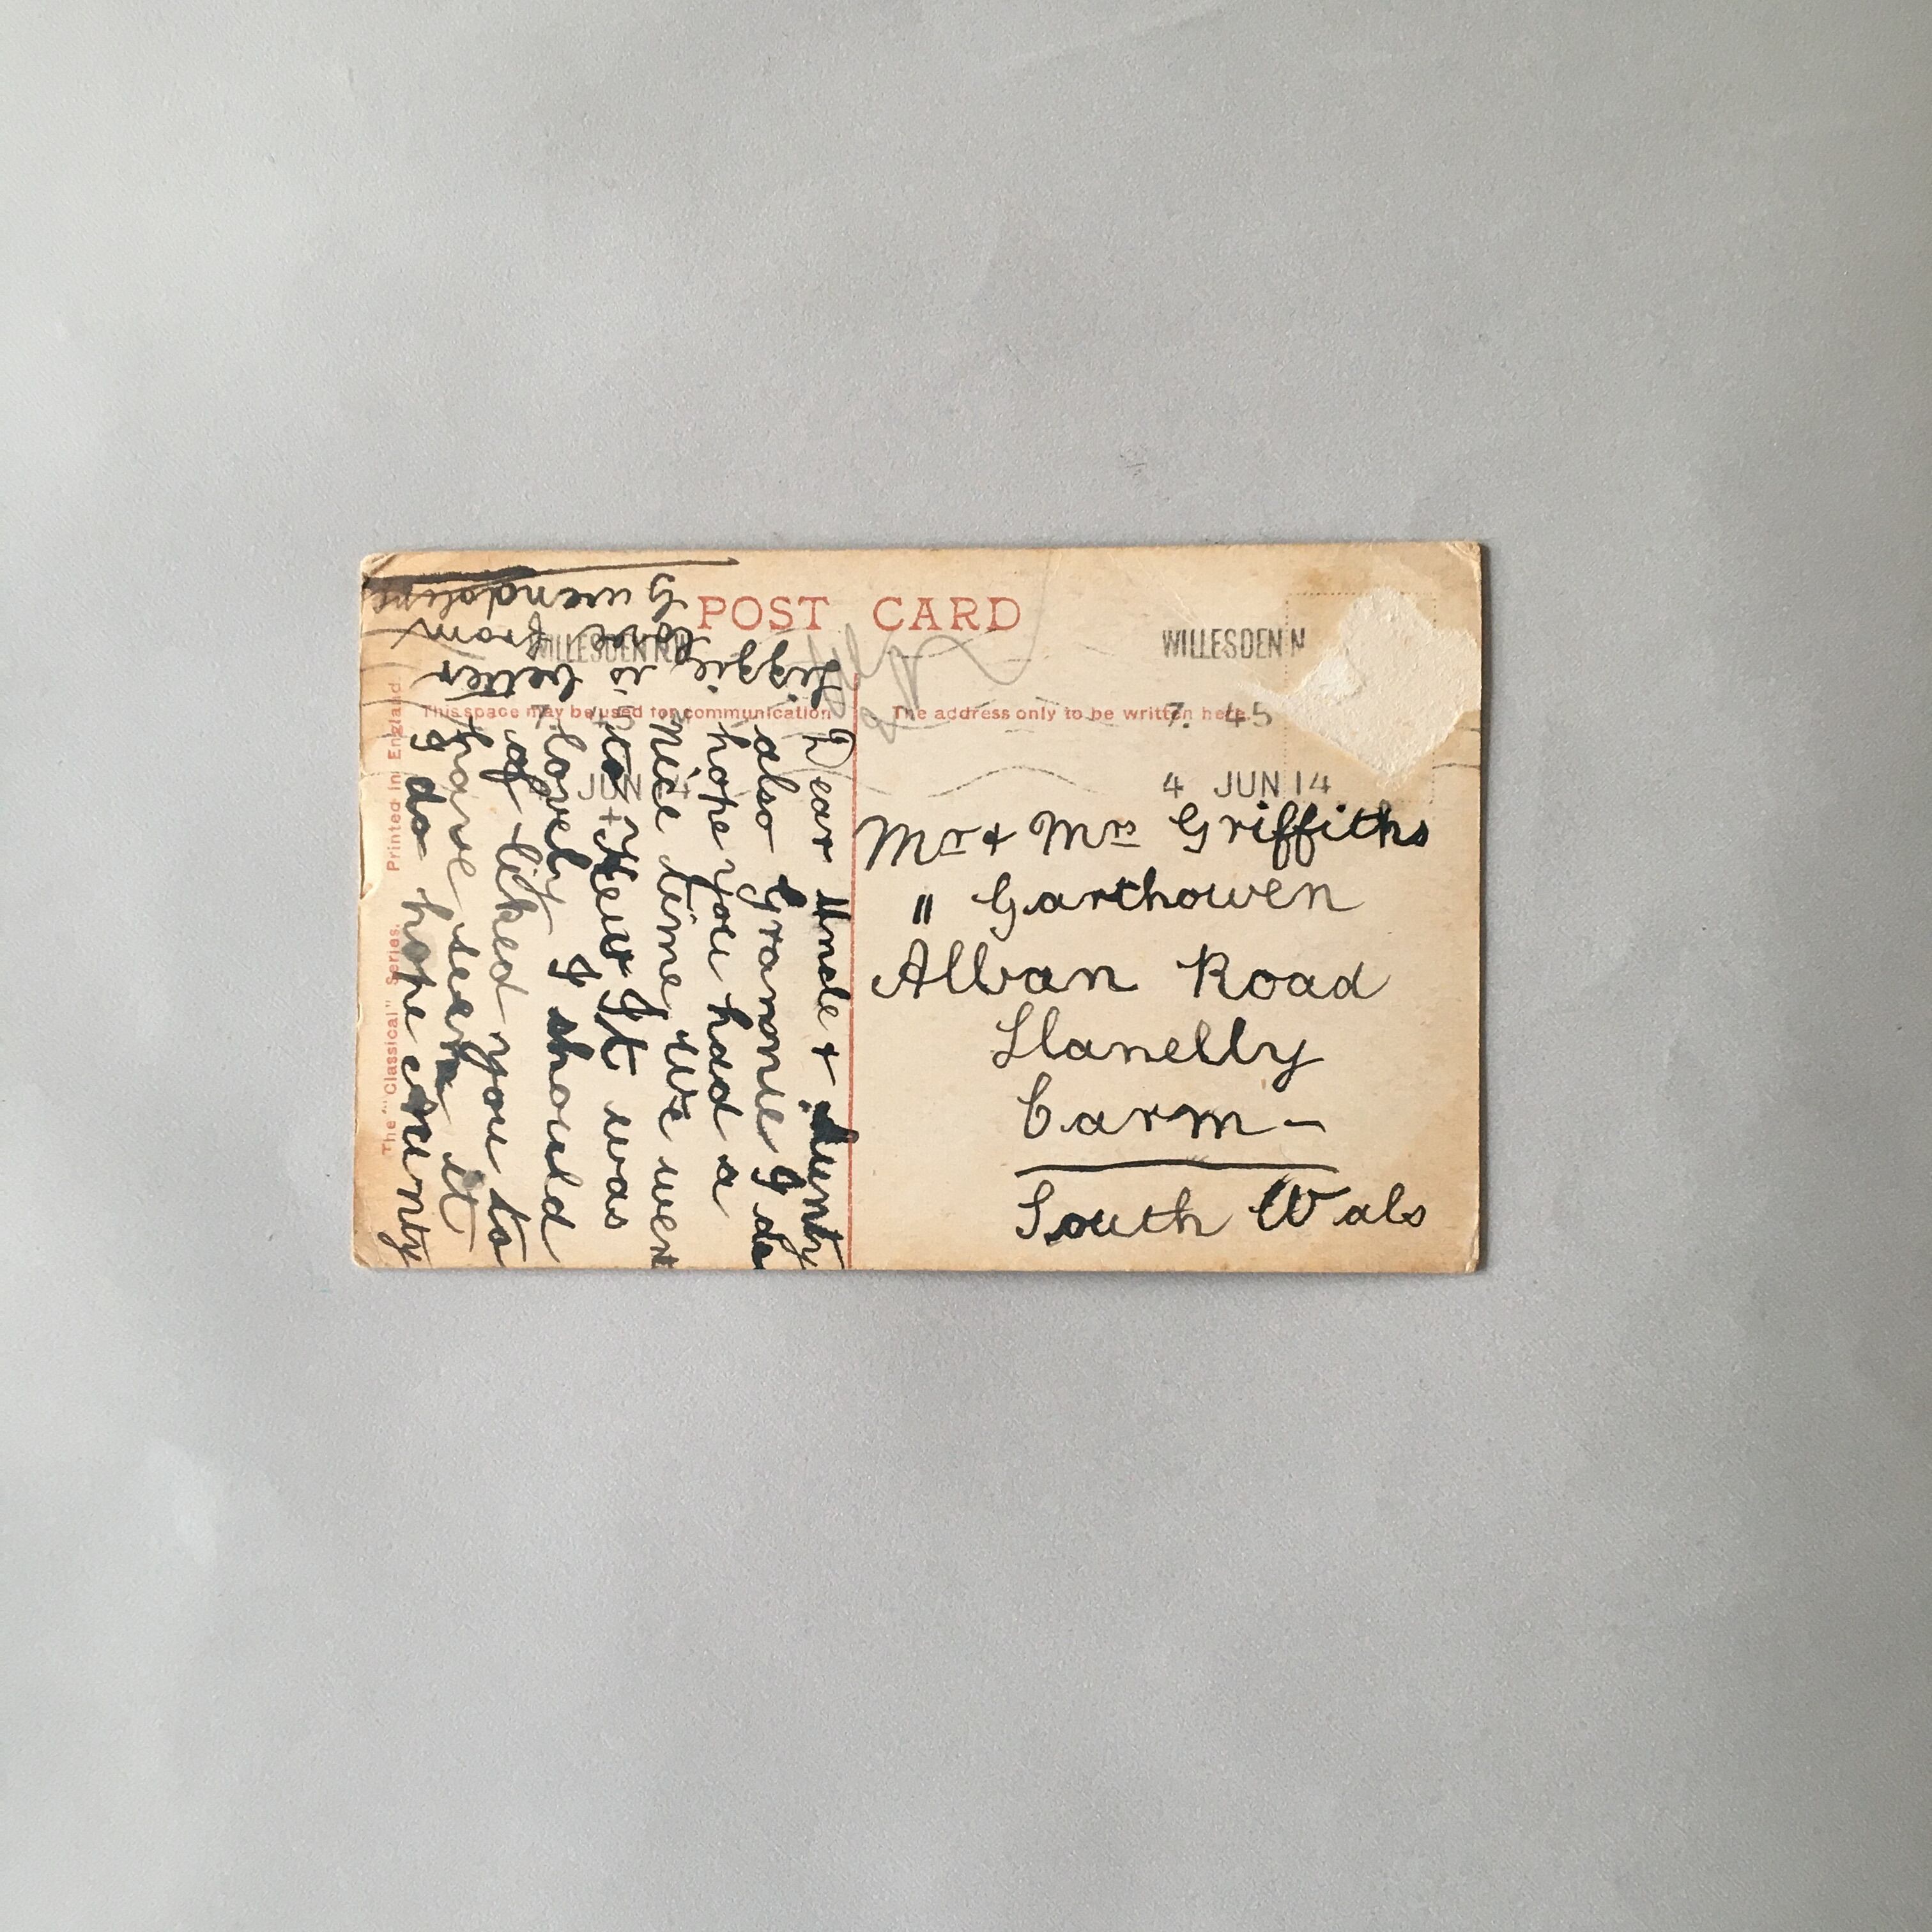 POST CARD
WILLESDEN N.W.
WILLESDEN N
This space may be used for communication
The address only to be written here.
7. 45
4 JUN 14
JUN 14
The "Classical" Series. Printed in England
Mr & Mrs Griffiths
" Garthowen
Alban Road
Llanelly
Carm –
South Wals
Dear Uncle + Aunty
also Grannie I do
hope you had a
nice time we went
to Kew It was
lovely I should
of liked you to
have seen it
I do hope aunty
Liggie is better
love from
Gwendoline